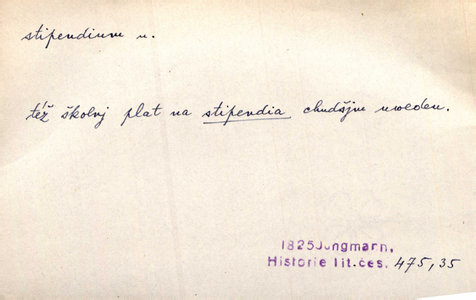 stipendium n.
též školnj plat na stipendia chudšjm uweden.
1825Jungmann,
Historie lit.čes. 475,35